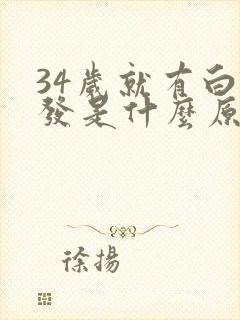 34歲就有白
發是什麼原
徐揚